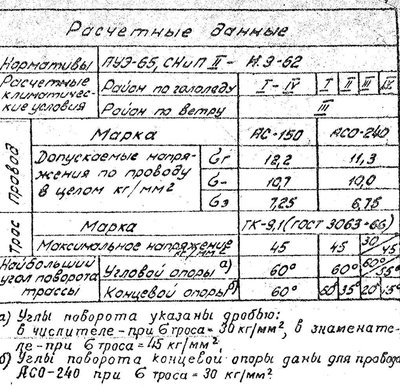 Расчетные данные
Нормативы ПУЭ-65, СНиП II- И.9-62
Расчетные климатичес-кие условия
Район по гололеду I-IV I II III IV
Район по ветру III
Провод
Марка АС-150 АСО-240
Допускаемые напря-
жения по проводу
в целом кг/мм²
σг 12,2 11,3
σ- 10,7 10,0
σэ 7,25 6,75
Трос
Марка ТК-9,1 (ГОСТ 3063-66)
Максимальное напряжение кг/мм² 45 45 30/45
Наибольший угол поворота трассы
Угловой опоры а) 60° 60° 60°/35°
Концевой опоры б) 60° 60° 35° 20°
а) Углы поворота указаны дробью:
в числителе - при σ троса = 30 кг/мм², в знаменате-
ле - при σ троса = 45 кг/мм².
б) Углы поворота концевой опоры даны для провода
АСО-240 при σ троса = 30 кг/мм².